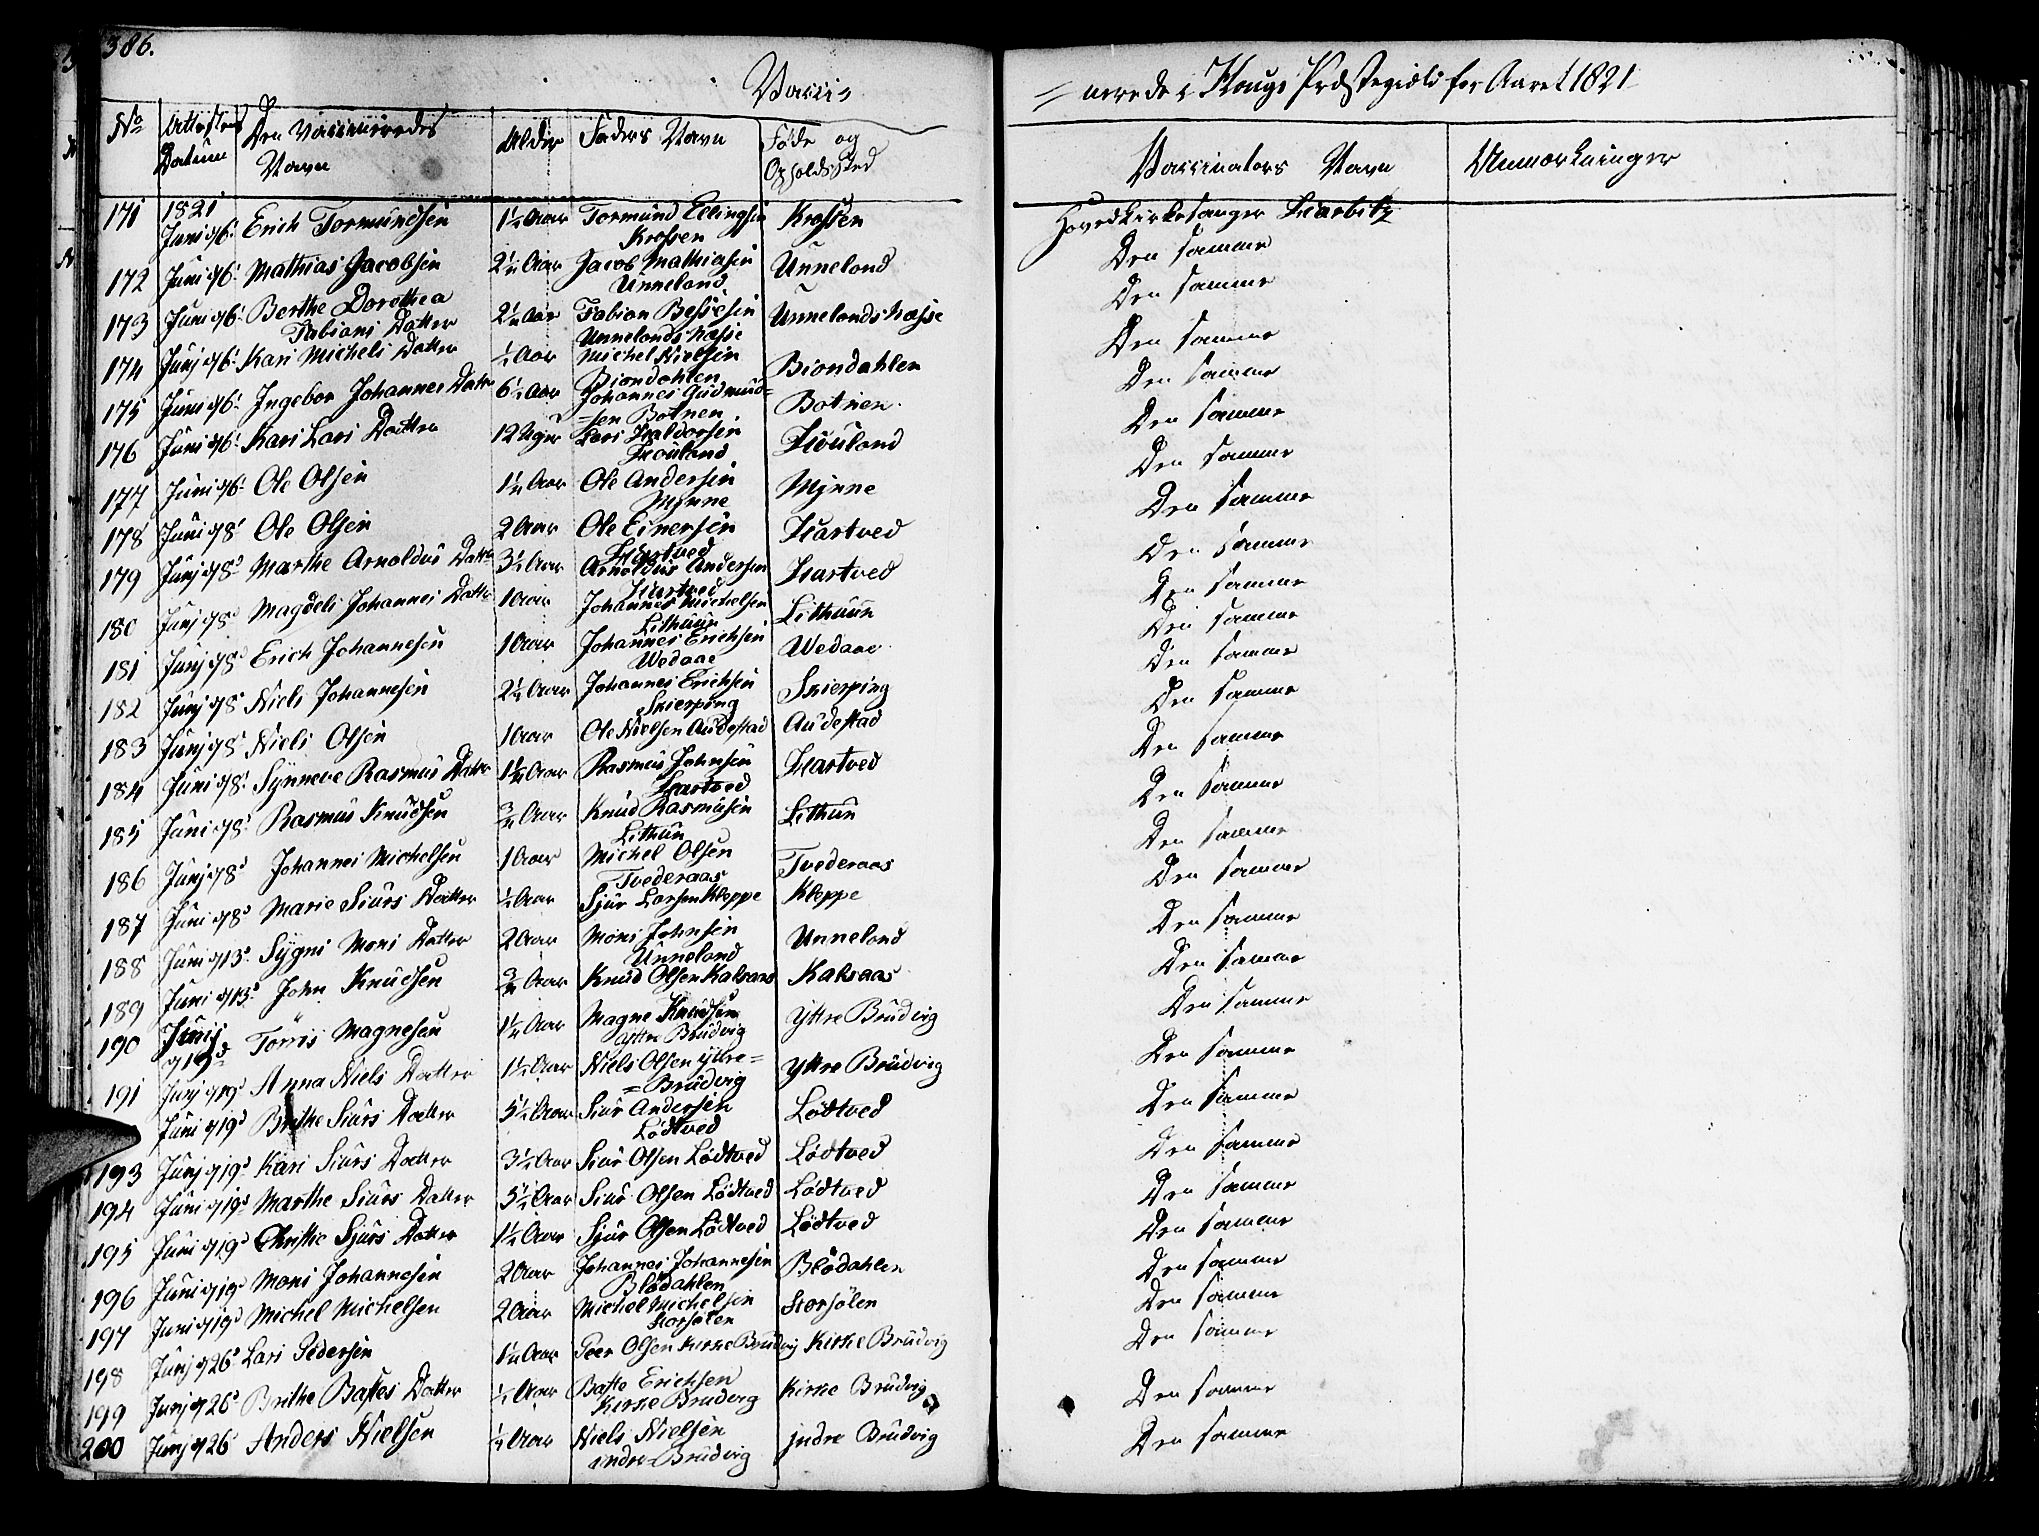 386.
Vacci=
=nerede i Hougs Præstegield for Aaret 1821
No Attestens Datum Den Vaccineredes Navn Alder Faders Navn Føde og Opholdssted Vaccinators Navn Anmærkninger
171 1821 Juni d 6' Erich Tormundsen 1½ Aar Tormund Ellingsen Krossen Krossen Hovedkirkesanger Hartvitz
Den samme
172 Juni d 6' Mathias Jacobsen 2½ Aar Jacob Mathiasen Unneland Unneland Den samme
173 Juni d 6' Berthe Dorothea Fabians Datter 2½ Aar Fabian Bessesen Unnelands Næsse Unnelands Næsse Den samme
174 Junj d 6' Kari Michels Datter ½ Aar Michel Nielsen Biondahlen Biondahlen Den samme
175 Juni d 6' Ingebor Johannes Datter 6½ Aar Johannes Gudmund=sen Botnen Botnen Den samme
176 Juni d 6' Kari Lars Datter 12 Uger Lars Haldorsen Houland Houland Den samme
177 Juni d 6' Ole Olsen 1½ Aar Ole Andersen Mjnne Mjnne Den samme
178 Juni d 8' Ole Olsen 2 Aar Ole Einersen Hartved Hartved Den samme
179 Junj d 8' Marthe Arnoldus Datter 3½ Aar Arnoldus Andersen Hartved Hartved Den samme
180 Junj d 8' Magdeli Johannes Datter 1 Aar Johannes Michelsen Lithuun Lithuun Den samme
181 Junj d 8' Erich Johannesen 1 Aar Johannes Erichsen Wedaae Wedaae Den samme
182 Junj d 8' Niels Johannesen 2½ Aar Johannes Erichsen Skierping Skierping Den samme
183 Junj d 8' Niels Olsen 1 Aar Ole Nielsen Audestad Audestad Den samme
184 Juni d 8' Synneve Rasmus Datter 1½ Aar Rasmus Johnsen Hartved Hartved Den samme
185 Juni d 8' Rasmus Knudsen Aar Knud Rasmusen Lithun Lithun Den samme
186 Junj d 8' Johannes Michelsen 1 Aar Michel Olsen Tvederaas Tvederaas Den samme
187 Juni d 8' Marie Siurs Datter ½ Aar Sjur Larsen Kleppe Kleppe Den samme
188 Juni d 13' Sygni Mons Datter 2 Aar Mons Johnsen Unneland Unneland Den samme
189 Juni d 13' John Knudsen Aar Knud Olsen Kalsaas Kalsaas Den samme
190 Junij d 19d Torris Magnesen 1½ Aar Magne Knudsen Yttre Brudvig Yttre Brudvig Den samme
191 Junj d 19d Anna Niels Datter 1½ Aar Niels Olsen yttre= =Brudvig Yttre Brudvig Den samme
Juni d 19d Brithe Siurs Datter 5½ Aar Siur Andersen Lødtved Lødtved Den samme
193 Junj d 19d Kari Siurs Datter 3½ Aar Siur Olsen Lødtved Lødtved Den samme
194 Juni d 19d Marthe Siurs Datter 5½ Aar Siur Olsen Lødtved Lødtved Den samme
195 Juni d 19d Christie Sjurs Datter 1½ Aar Sjur Olsen Lødtved Lødtved Den samme
196 Juni d 19d Mons Johannesen 2 Aar Johannes Johannesen Blødahlen Blødahlen Den samme
197 Juni d 19d Michel Michelsen 2 Aar Michel Michelsen Storsølen Storsølen Den samme
198 Junj d 26d Lars Pedersen 1½ Aar Peer Olsen Kirke Brudvig Kirke Brudvig Den samme
199 Junj d 26d Brithe Bastes Datter ½ Aar Baste Erichsen Kirke Brudvig Kirke Brudvig Den samme
200 Junj d 26 Anders Nielsen ½ Aar Niels Nielsen indre Brudvig jndre Brudvig Den samme